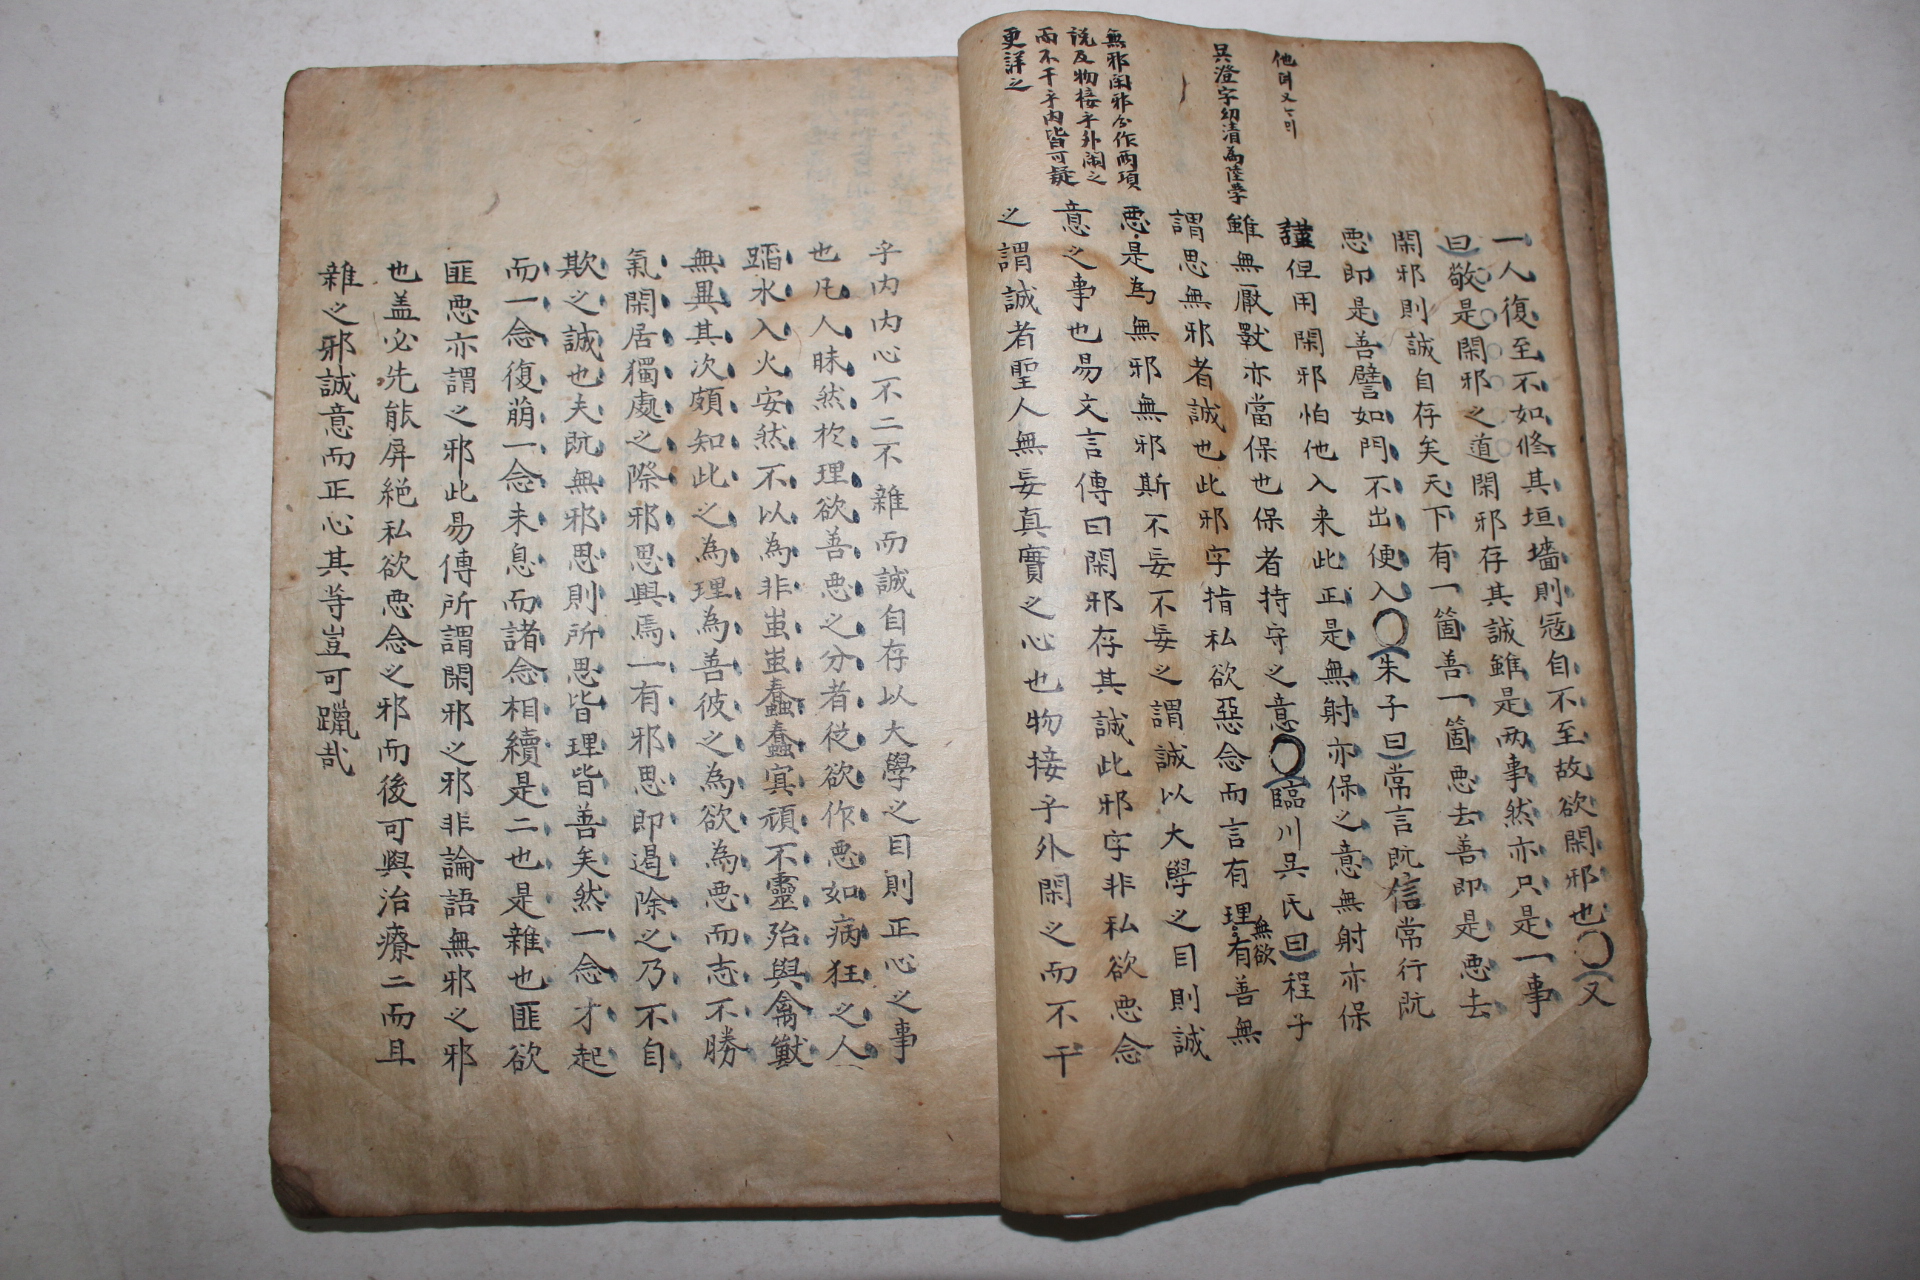 一人復至不如修其垣墻則寇自不至故欲閑邪也〇又
曰敬是閑邪之道閑邪存其誠雖是两事然亦只是一事
閑邪則誠自存矣天下有一箇善一箇悪去善即是悪去
悪即是善譬如門不出便入〇朱子曰常言旣信常行旣
謹但用閑邪怕他入来此正是無射亦保之意無射亦保
雖無厭斁亦當保也保者持守之意〇臨川吳氏曰程子
謂思無邪者誠也此邪字指私欲惡念而言有理無欲有善無
悪是為無邪無邪斯不妄不妄之謂誠以大學之目則誠
意之事也易文言傳曰閑邪存其誠此邪字非私欲悪念
之謂誠者聖人無妄真實之心也物接乎外閑之而不干
吳澄字幼清為陸學
無邪閑邪分作两項
說及物接乎外閑之
而不干乎內皆可疑
更詳之
乎内内心不二不雜而誠自存以大學之目則正心之事
也凡人昧然於理欲善悪之分者從欲作悪如病狂之人
蹈水入火安然不以為非蚩蚩蠢蠢冥頑不靈殆與禽獸
無異其次頗知此之為理為善彼之為欲為悪而志不勝
氣閑居獨處之際邪思興焉一有邪思即遏除之乃不自
欺之誠也夫旣無邪思則所思皆理皆善矣然一念才起
而一念復萠一念未息而諸念相續是二也是雜也匪欲
匪悪亦謂之邪此易傳所謂閑邪之邪非論語無邪之邪
也盖必先能屏絕私欲悪念之邪而後可與治療二而且
雜之邪誠意而正心其等豈可躐哉